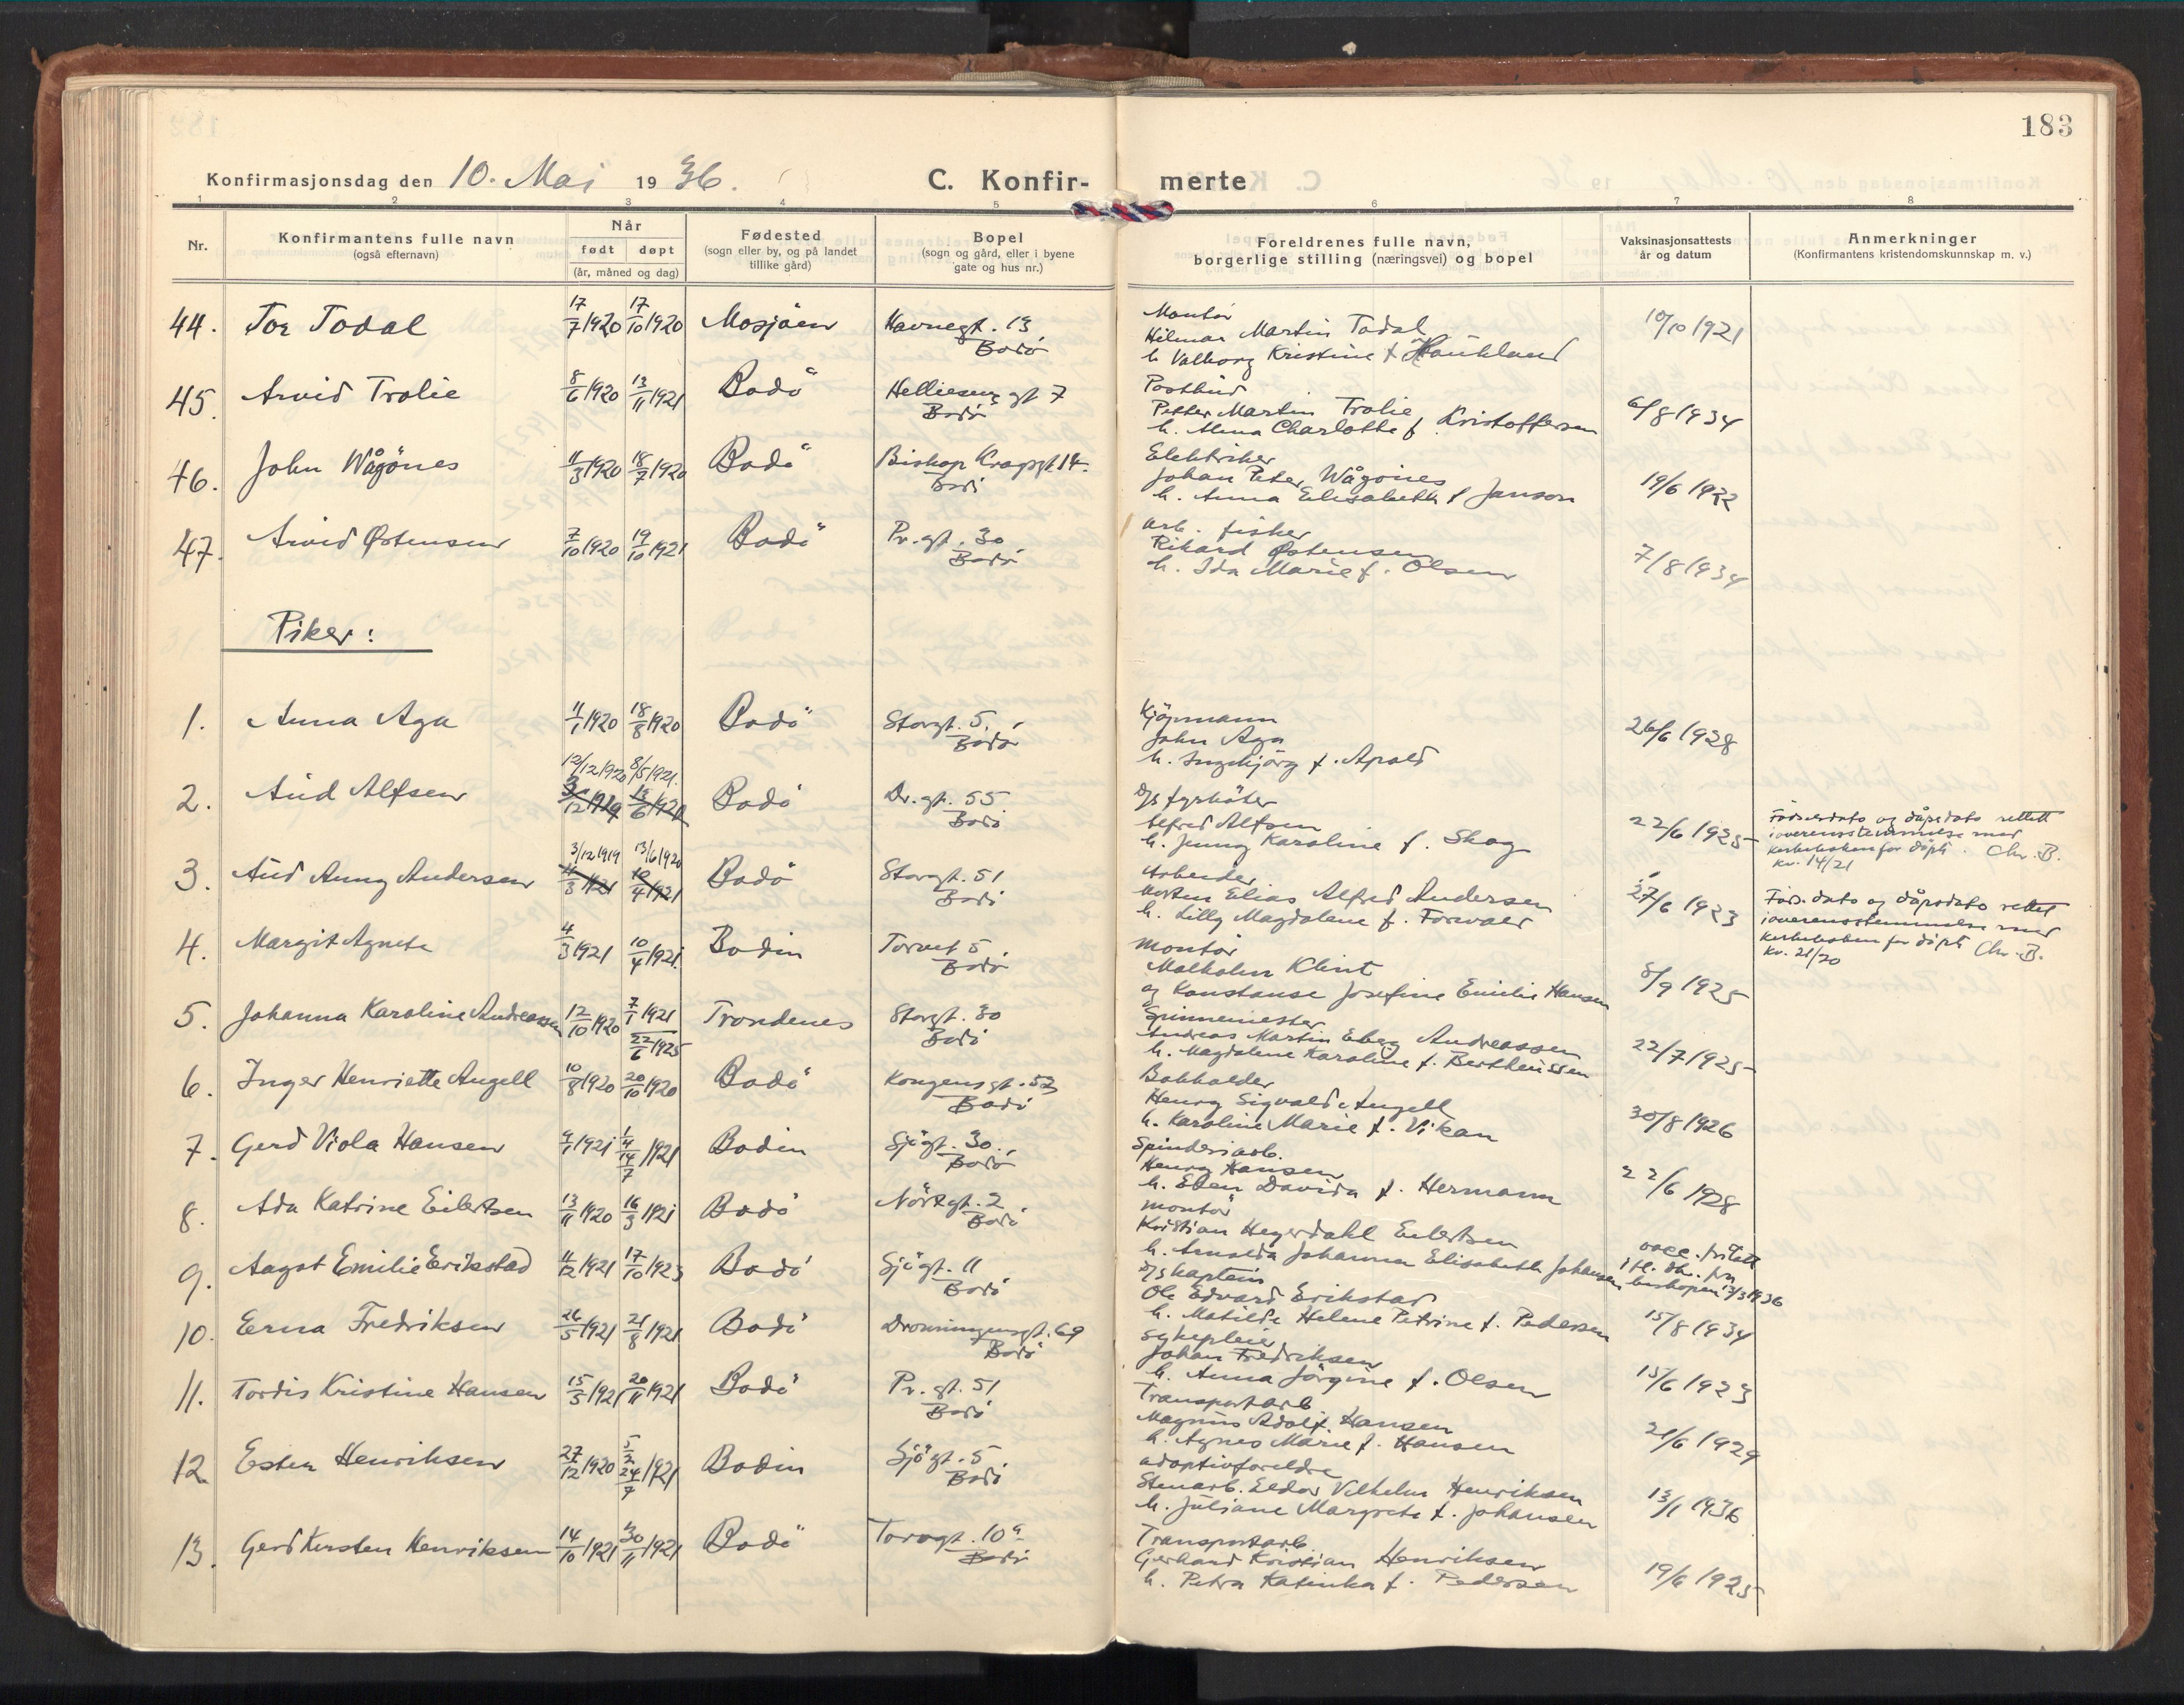 183
Konfirmasjonsdag den 10. Mai 1936.
C. Konfir- merte
1 2 3 4 5 6 7 8
Nr.
Konfirmantens fulle navn
(også efternavn)
Når
født døpt
(år, måned og dag)
Fødested
(sogn eller by, og på landet
tillike gård)
Bopel
(sogn og gård, eller i byene
gate og hus nr.)
Foreldrenes fulle navn,
borgerlige stilling (næringsvei) og bopel
Vaksinasjonsattests
år og datum
Anmerkninger
(Konfirmantens kristendomskunnskap m. v.)
44. Tor Todal 17/7 1920 17/10 1920 Mosjöen Havnegt. 13 Bodö
Montör
Hilmar Martin Todal
h. Valborg Kristine f. Haukland
10/10 1921
45. Arvid Trolie 8/6 1920 13/11 1921 Bodö Helliesens gt 7 Bodö
Postbud
Petter Martin Trolie
h. Alma Charlotte f. Kristoffersen
6/8 1934
46. John Wågönes 11/3 1920 18/7 1920 Bodö Biskop Kragsgt 14. Bodö
Elektriker
Johan Peter Wågönes
h. Anna Elisabeth f. Janson
19/6 1922
47. Arvid Østensen 7/10 1920 19/10 1921 Bodö Pr. gt. 30 Bodö
arb. fisker
Rikard Østensen
h. Ida Marie f. Olsen
7/8 1934
Piker:
1. Anna Aga 11/1 1920 18/8 1920 Bodö Storgt. 5. Bodö
Kjöpmann
John Aga
h. Ingebjörg f. Apold
26/6 1928
2. Aud Alfsen 12/12 1920 8/5 1921. 3/12 1919 13/6 1920 Bodö Dr. gt. 55 Bodö
D/s fyrböter
Alfred Alfsen
h. Jenny Karoline f. Skog
22/6 1925
Födselsdato og dåpsdato rettett
i overensstemmelse med
kirkeboken for döpte. Chr. B.
Kv. 14/21
3. Aud Anny Andersen 3/12 1919 13/6 1920 4/3 1921 10/4 1921 Bodö Storgt. 51 Bodö
Arbeider
Morten Elias Alfred Andersen
h. Lilly Magdalene f. Forvaer
27/6 1923
Föds. dato og dåpsdato rettet
i overensstemmelse med
kirkeboken for döpte Chr. B.
Kv. 21/20
4. Margit Agnete 4/3 1921 10/4 1921. Bodin Torvet 5 Bodö
montör
Malholm Klint
og Konstanse Josefine Emilie Hansen
8/9 1925
5. Johanna Karoline Andreassen 12/10 1920 7/1 1921 22/6 1925 Trondenes Storgt. 30 Bodö
Spinnemester
Andreas Martin Eberg Andreassen
h. Magdalene Karoline f. Bertheussen
22/7 1925
6. Inger Henriette Angell 10/8 1920 20/10 1920 Bodö Kongensgt. 53 Bodö
Bokholder
Henry Sigvald Angell
h. Karoline Marie f. Vikan
30/8 1926
7. Gerd Viola Hansen 9/1 1921 1/4 14/7 1921 Bodin Sjögt. 30. Bodö
Spinderiarb.
Henry Hansen
h. Eben Davida f. Hermann
22/6 1928
8. Ada Katrine Eilertsen 13/11 1920 16/3 1921 Bodö Nörregt. 2 Bodö
montör
Kristian Hegerdahl Eilertsen
h. Arnolda Johanna Elisabeth Johansen
vacc. fritatt
bispkopen 13/3 1936
9. Aagot Emilie Erikstad 11/12 1921 17/10 1923 Bodö Sjögt. 11 Bodö
D/s kaptein
Ole Edvard Erikstad
h. Matilde Helene Petrine f. Pedersen
15/8 1934
10. Erna Fredriksen 26/5 1921 21/8 1921 Bodö Dronningensgt. 69 Bodö
sykepleier
Johan Fredriksen
h. Anna Jörgine f. Olsen
15/6 1923
11. Tordis Kristine Hansen 15/5 1921 20/11 1921 Bodö Pr. gt. 51 Bodö
Transportarb
Magnus Adolf Hansen
h. Agnes Marie f. Hansen
21/6 1929
12 Ester Henriksen 27/12 1920 5/2 24/7 1921 Bodin Sjögt. 5. Bodö
adoptivforeldre
Stenarb. Eldor Vilhelm Henriksen
h. Juliane Margrete f. Johansen
13/1 1936
13. Gerd Kirsten Henriksen 14/10 1921 30/11 1921 Bodö Torvgt. 10a Bodö
Transportarb.
Gerhard Kristian Henriksen
h. Petra Katinka f. Pedersen
19/6 1925